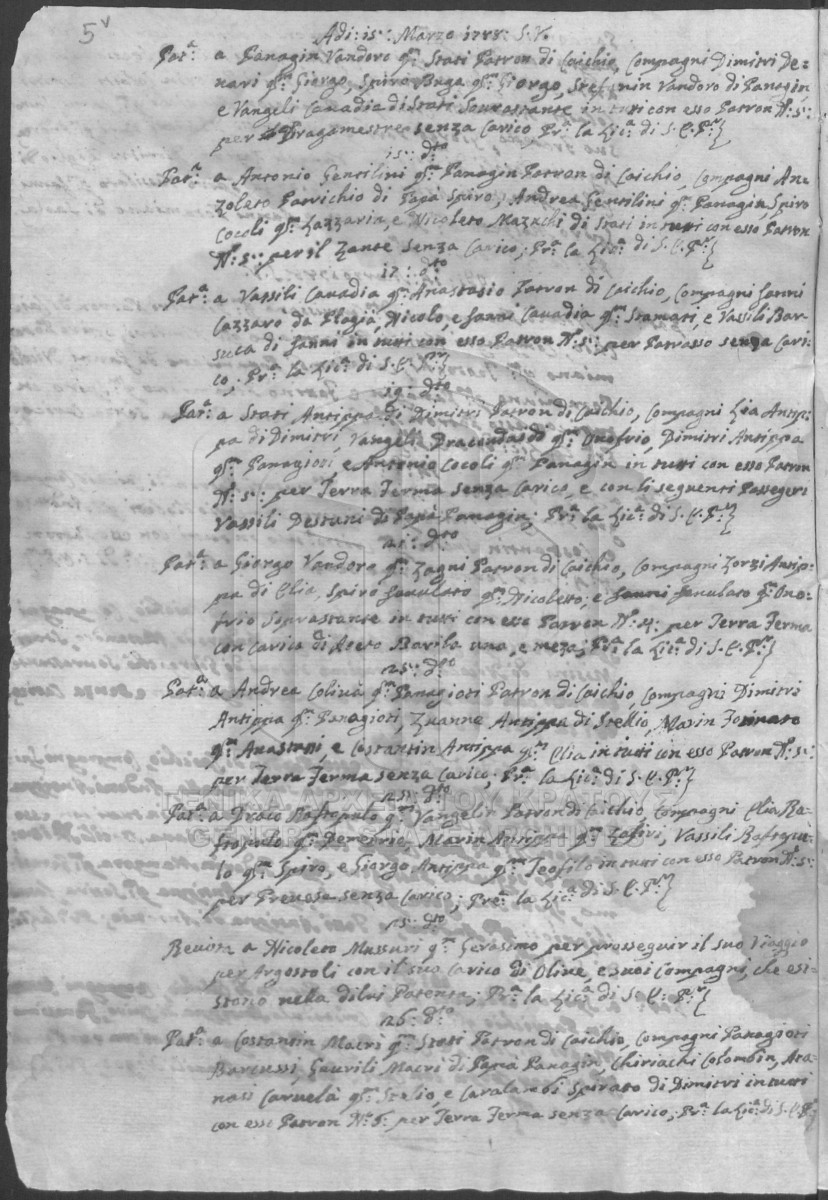 5v
Adi: 15: Marzo 1788: S.V.
Pat.a a Panagin Vandoro q.m Stati Patron di Caichio, Compagni Dimitri De=
nari q.m Giorgo, Spiro Buga q.m Giorgo, Stefanin Vandoro di Panagin,
e Vangeli Cavadia di Stati Sourastante in tutti con esso Patron N.º: 5:
per Dragamestre senza Carico Pr.a la Lic.a di S. E. Pr.}
15: d.to
Pat.a a Antonio Gentilini q.m Panagin Patron di Caichio, Compagni An=
zoleto Parichio di Papà Spiro, Andrea Gentilini q.m Panagin, Spiro
Cocoli q.m Lazzarin, e Nicoleto Mazachi di Stati in tutti con esso Patron
N.º: 5: per il Zante senza Carico; Pr.a la Lic.a di S. E. Pr.}
17: d.to
Pat.a a Vassili Cavadia q.m Anastasio Patron di Caichio, Compagni Janni
Cazzaro da Plagià, Nicolo, e Janni Cavadia q.m Stamati, e Vassili Bar=
suca di Janni in tutti con esso Patron N.º: 5: per Patrasso senza Cari=
co; Pr.a la Lic.a di S. E. Pr.}
19: d.to
Pat.a a Stati Antippa di Dimitri Patron di Caichio, Compagni Lia Antip=
pa di Dimitri, Vangeli Dracondaidò q.m Onofrio, Dimitri Antippa
q.m Panagioti e Antonio Cocoli q.m Panagin in tutti con esso Patron
N.º: 5: per Terra Ferma senza Carico, e con li seguenti Passegeri
Vassili Destuni di Papà Panagin; Pr.a la Lic.a di S. E. Pr.}
21: d.to
Pat.a a Giorgo Vandoro q.m Zagni Patron di Caichio, Compagni Zorzi Antip=
pa di Elia, Spiro Janulato q.m Nicoletto, e Janni Janulato q.m Ono=
frio Soprastante in tutti con esso Patron N.º: 4: per Terra Ferma
con Carico di Aseto Barila una, e meza; Pr.a la Lic.a di S. E. Pr.}
25: d.to
Pat.a a Andrea Colivà q.m Panagioti Patron di Caichio, Compagni Dimitri
Antippa q.m Panagioti, Zuanne Antippa di Stellio, Marin Forinaro
q.m Anastasi, e Costantin Antippa q.m Elia in tutti con esso Patron N.º: 5:
per Terra Ferma senza Carico; Pr.a la Lic.a di S. E. Pr.}
25: d.to
Pat.a a Draco Raftopulo q.m Vangelin Patron di Caichio, Compagni Elia Ra=
ftopulo q.m Demetrio, Marin Antippa q.m Zafiri, Vassili Raftopu=
lo q.m Spiro, e Giorgo Antippa q.m Teofilo in tutti con esso Patron N.º: 5:
per Prevesa senza Carico; Pr.a la Lic.a di S. E. Pr.}
25: d.to
Revista a Nicoleto Mussuri q.m Gerasimo per prosseguir il suo Viaggio
per Argostoli con il suo Carico di Olive e suoi Compagni, che esi=
stono nella di lui Patente; Pr.a la Lic.a di S. E. Pr.}
26: d.to
Pat.a a Costantin Macri q.m Stati Patron di Caichio, Compagni Panagioti
Barcussi, Gavrili Macri di Papà Panagin, Chiriachi Colombin, Ata=
nasi Carvelà q.m Stelio, e Caralambi Spirato di Dimitri in tutti
con esso Patron N.º 6: per Terra Ferma senza Carico; Pr.a la Lic.a di S. E. Pr.
ΓΕΝΙΚΑ ΑΡΧΕΙΑ ΤΟΥ ΚΡΑΤΟΥΣ
GENERAL STATE ARCHIVES